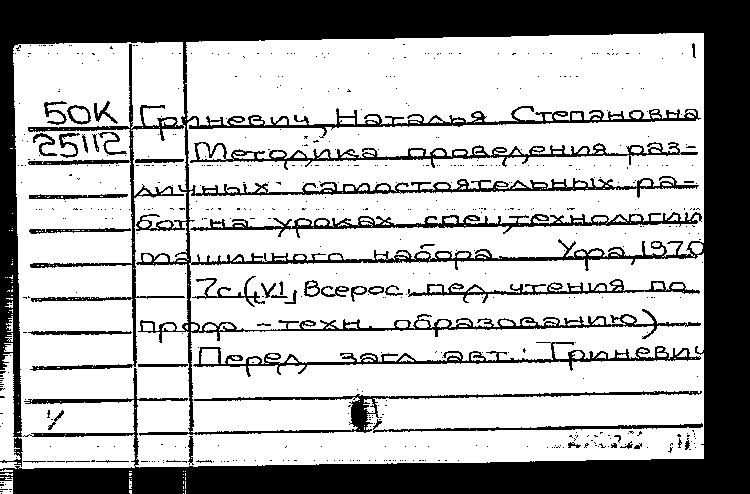 1
50К Гриневич, Наталья Степановна
25112 Методика проведения раз-
личных самостоятельных ра-
бот на уроках спецтехнологии
машинного набора. Уфа, 1970
7с. (VI Всерос. пед. чтения по
проф. - техн. образованию)
Перед загл. авт.: Гриневич